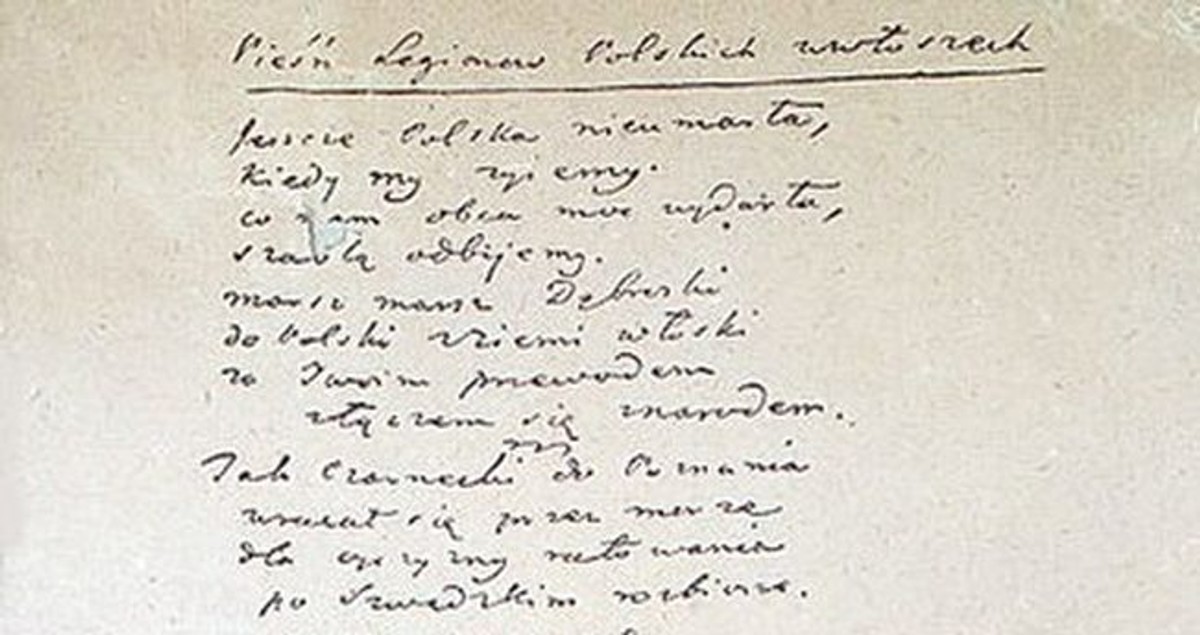 Pieśń Legionow Polskich wewłoszech
Jeszcze Polska nieumarła,
kiedy my zyiemy.
co nam obca moc wydarła,
szablą odbijemy.
marsz marsz Dąbroski
do Polski zziemi włoski
za Twoim przewodem
złączem się znarodem.
Jak Czarnecki do Poznania
wracał się przez morze
dla ojczyzny ratowania
po Szwedzkim rozbiorze.